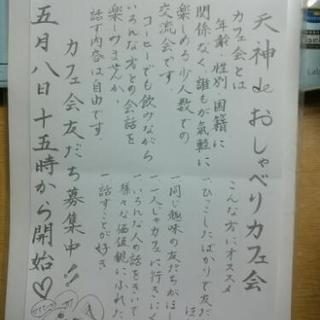 天神deおしゃべりカフェ会
カフェ会とは
年齢、性別、国籍に
関係なく誰もが気軽に、
楽しめる少人数での
交流会です
コーヒーでも飲みながら
いろんな方との会話を
楽しみませんか。
話す内容は自由です。
こんな方にオススメ
ひっこしたばかりで友だ
ほ
一同じ趣味の友だちがほ
一一人じゃカフェに行きにく
一いろんな人の話をきいて
様々な価値観にふれた
一話すことが好き
カフェ会友だち募集中!!
五月八日十五時から開始♡